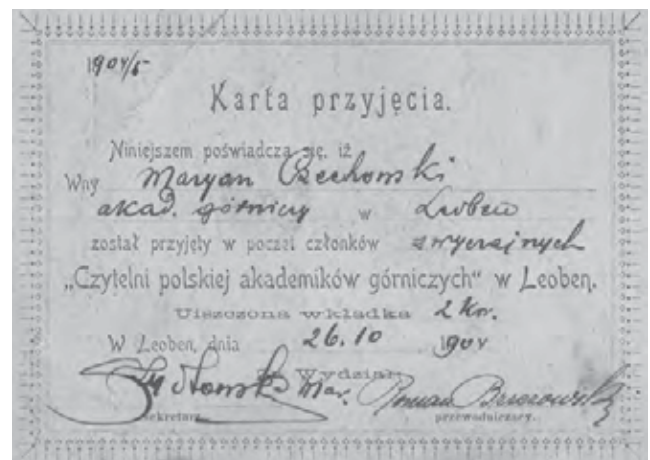 1904/5
Karta przyjęcia.
Niniejszem poświadcza się, iż
Wny Maryan Czechowski
akad. górniczy w Leoben
został przyjęty w poczet członków zwyczajnych
„Czytelni polskiej akademików górniczych“ w Leoben.
Uiszczona wkładka 2 Kor.
W Leoben, dnia 26.10 1904
Za Wydział:
Roman Brzozowski
sekretarz. przewodniczący.